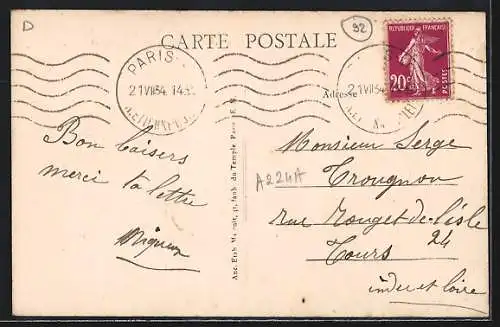 D
92
CARTE POSTALE
REPUBLIQUE FRANÇAISE
20c
POSTES
PARIS
21 VII 34 14
21 VII 34
Adresse
Bon baisers
merci ta lettre
Monsieur Serge
Trougnou
A224A
rue Rouget de l'isle
24
Tours
indre et loire
faub. du Temple, Paris